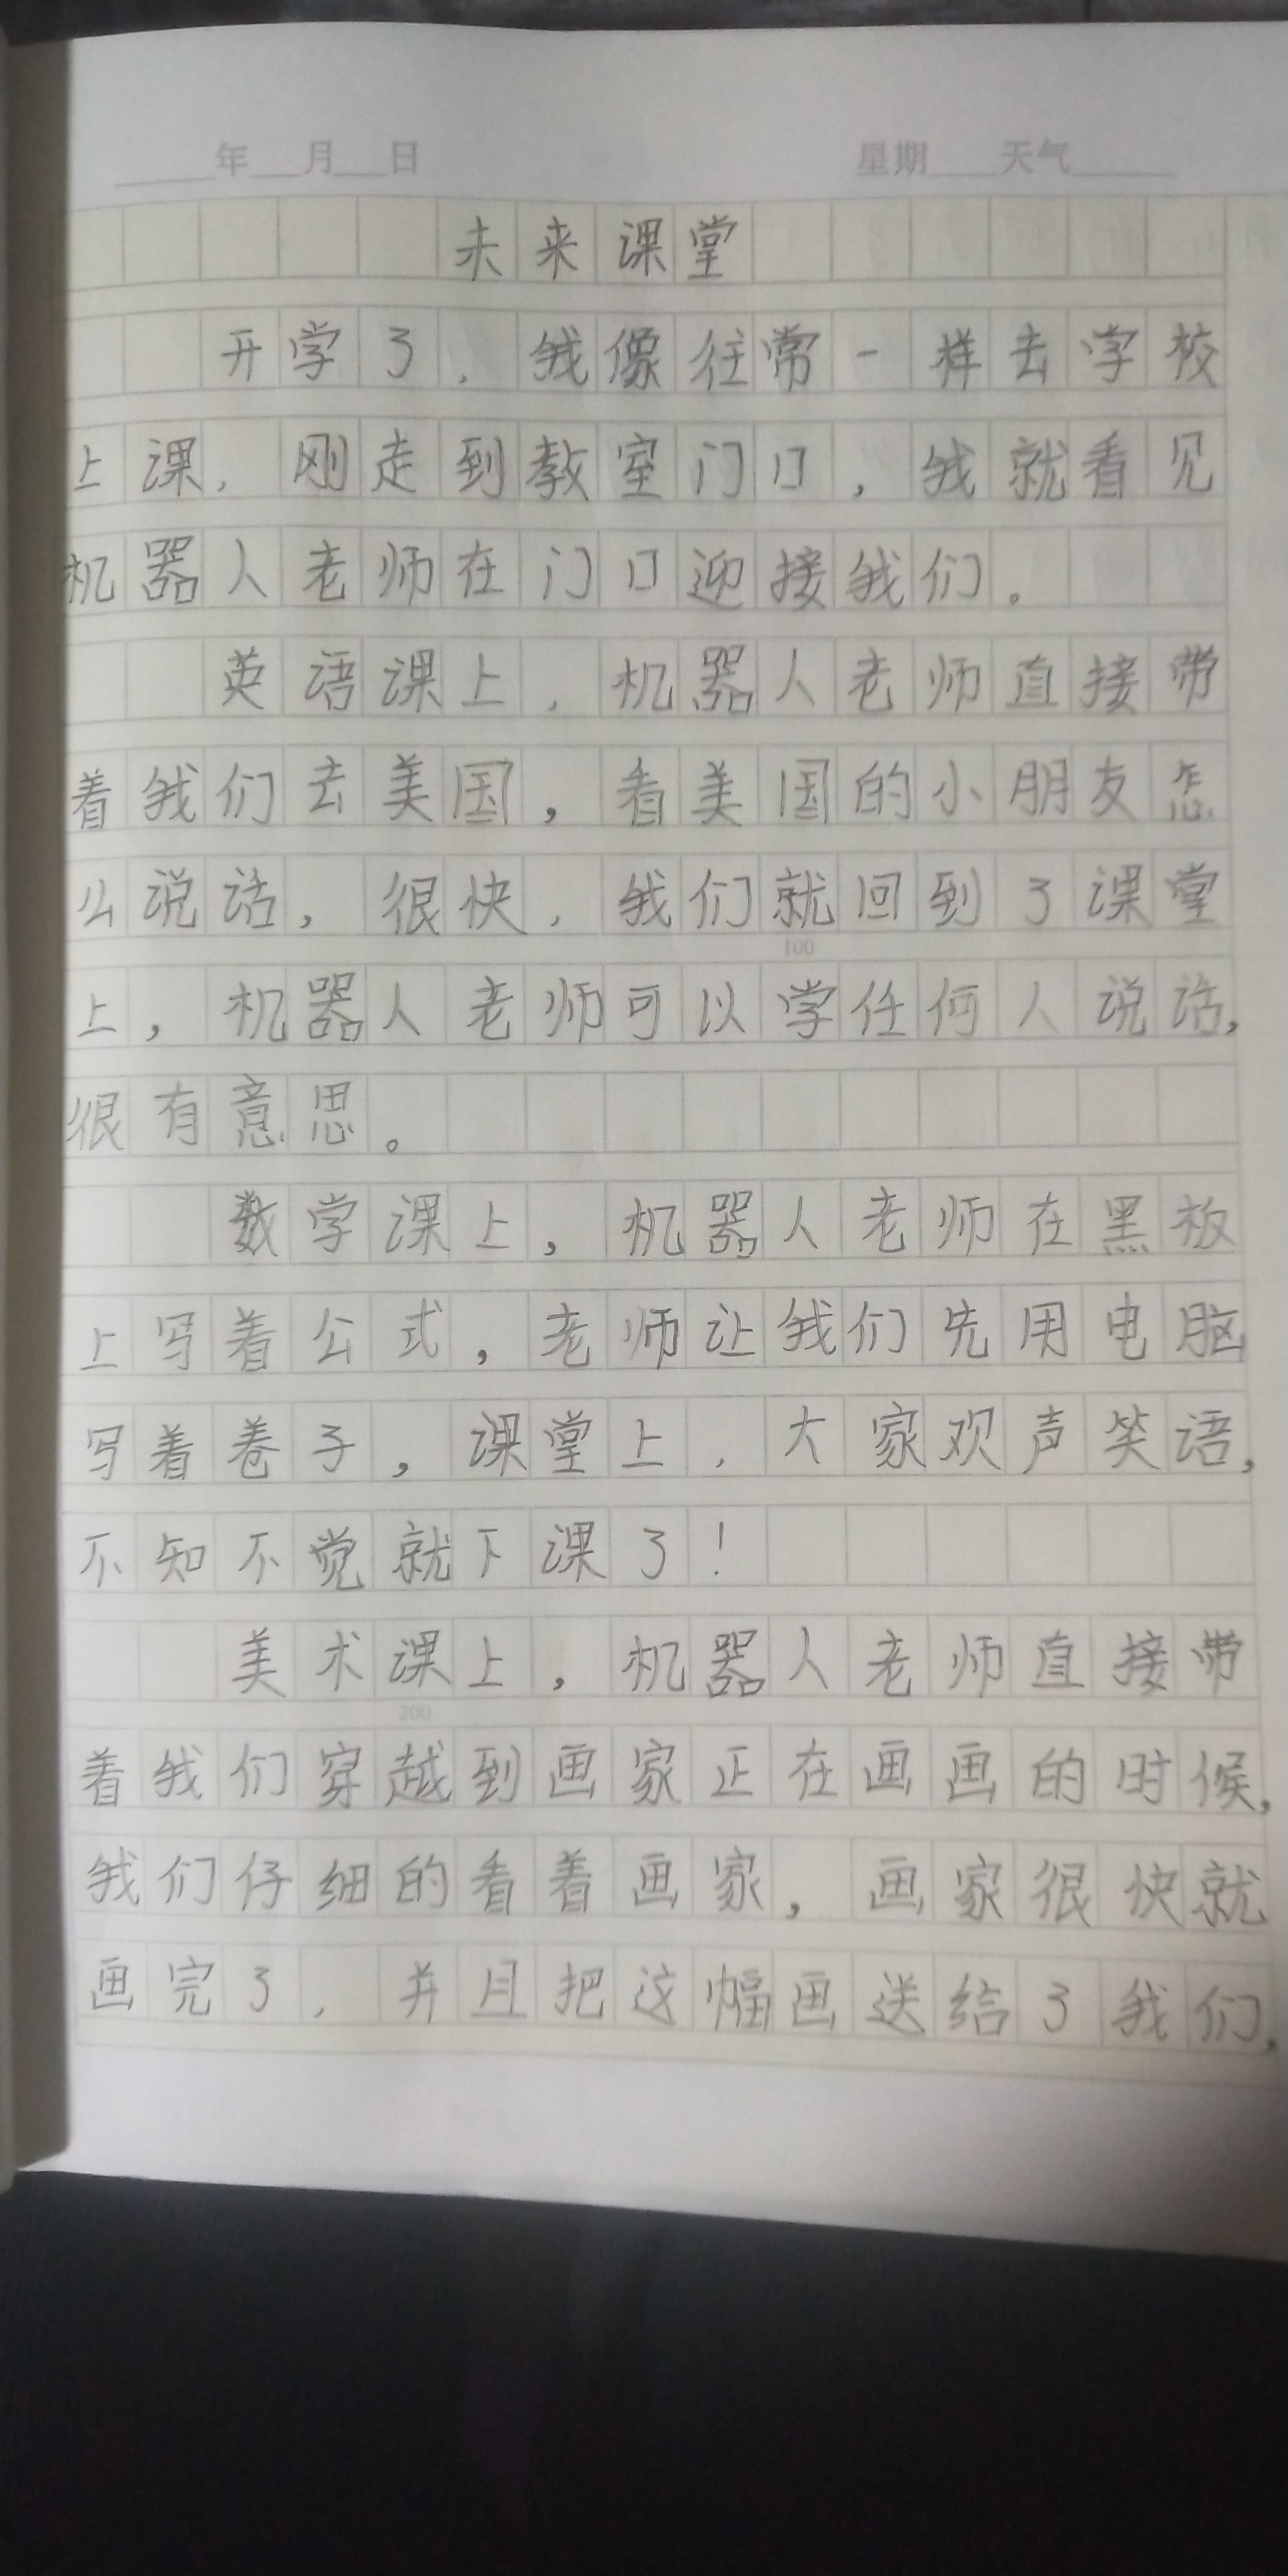 年 月 日 星期 天气
未来课堂
开学了,我像往常一样去学校
上课,刚走到教室门口,我就看见
机器人老师在门口迎接我们。
英语课上,机器人老师直接带
着我们去美国,看美国的小朋友怎
么说话,很快,我们就回到了课堂
100
上,机器人老师可以学任何人说话,
很有意思。
数学课上,机器人老师在黑板
上写着公式,老师让我们先用电脑
写着卷子,课堂上,大家欢声笑语,
不知不觉就下课了!
美术课上,机器人老师直接带
200
着我们穿越到画家正在画画的时候,
我们仔细的看着画家,画家很快就
画完了,并且把这幅画送给了我们,